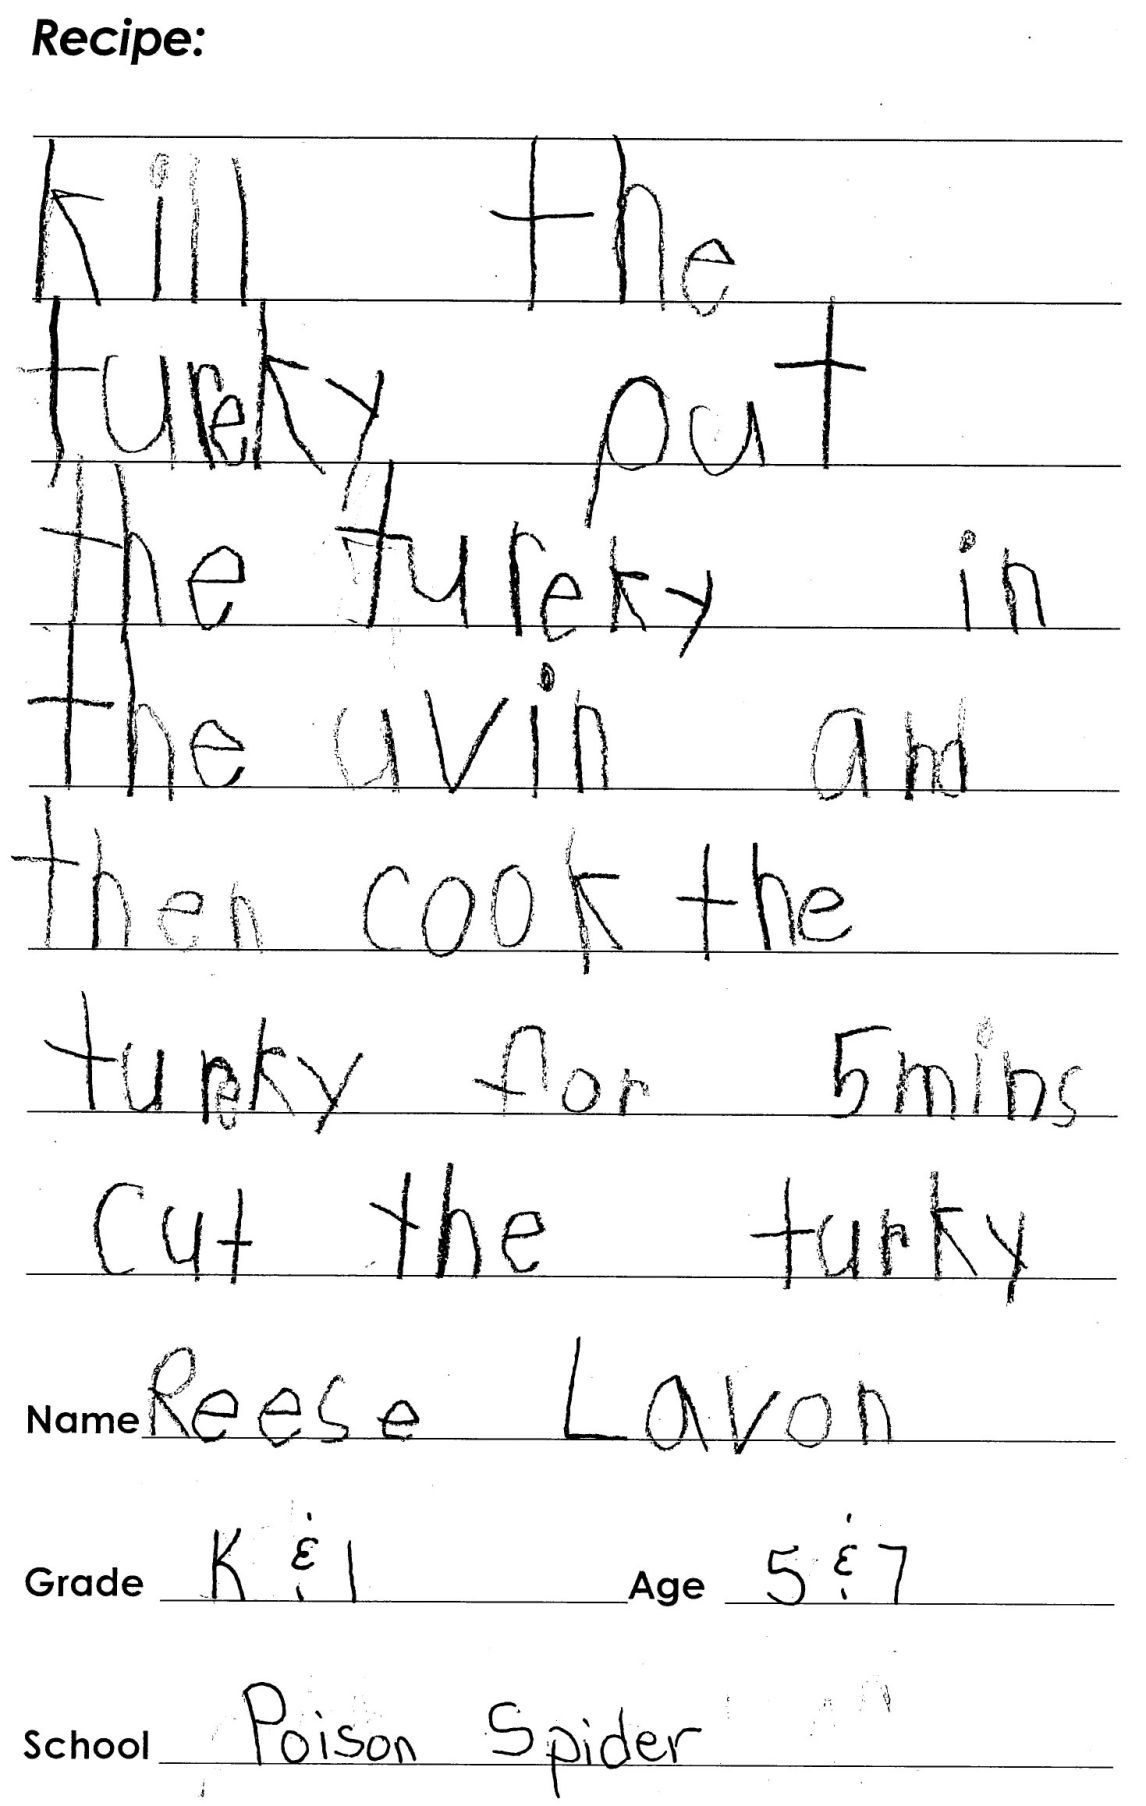 Recipe:
kill the
tureky put
the tureky in
the uvin and
then cook the
tureky for 5mins
cut the turky
Name Reese Lavon
Grade K & 1 Age 5 & 7
School Poison Spider